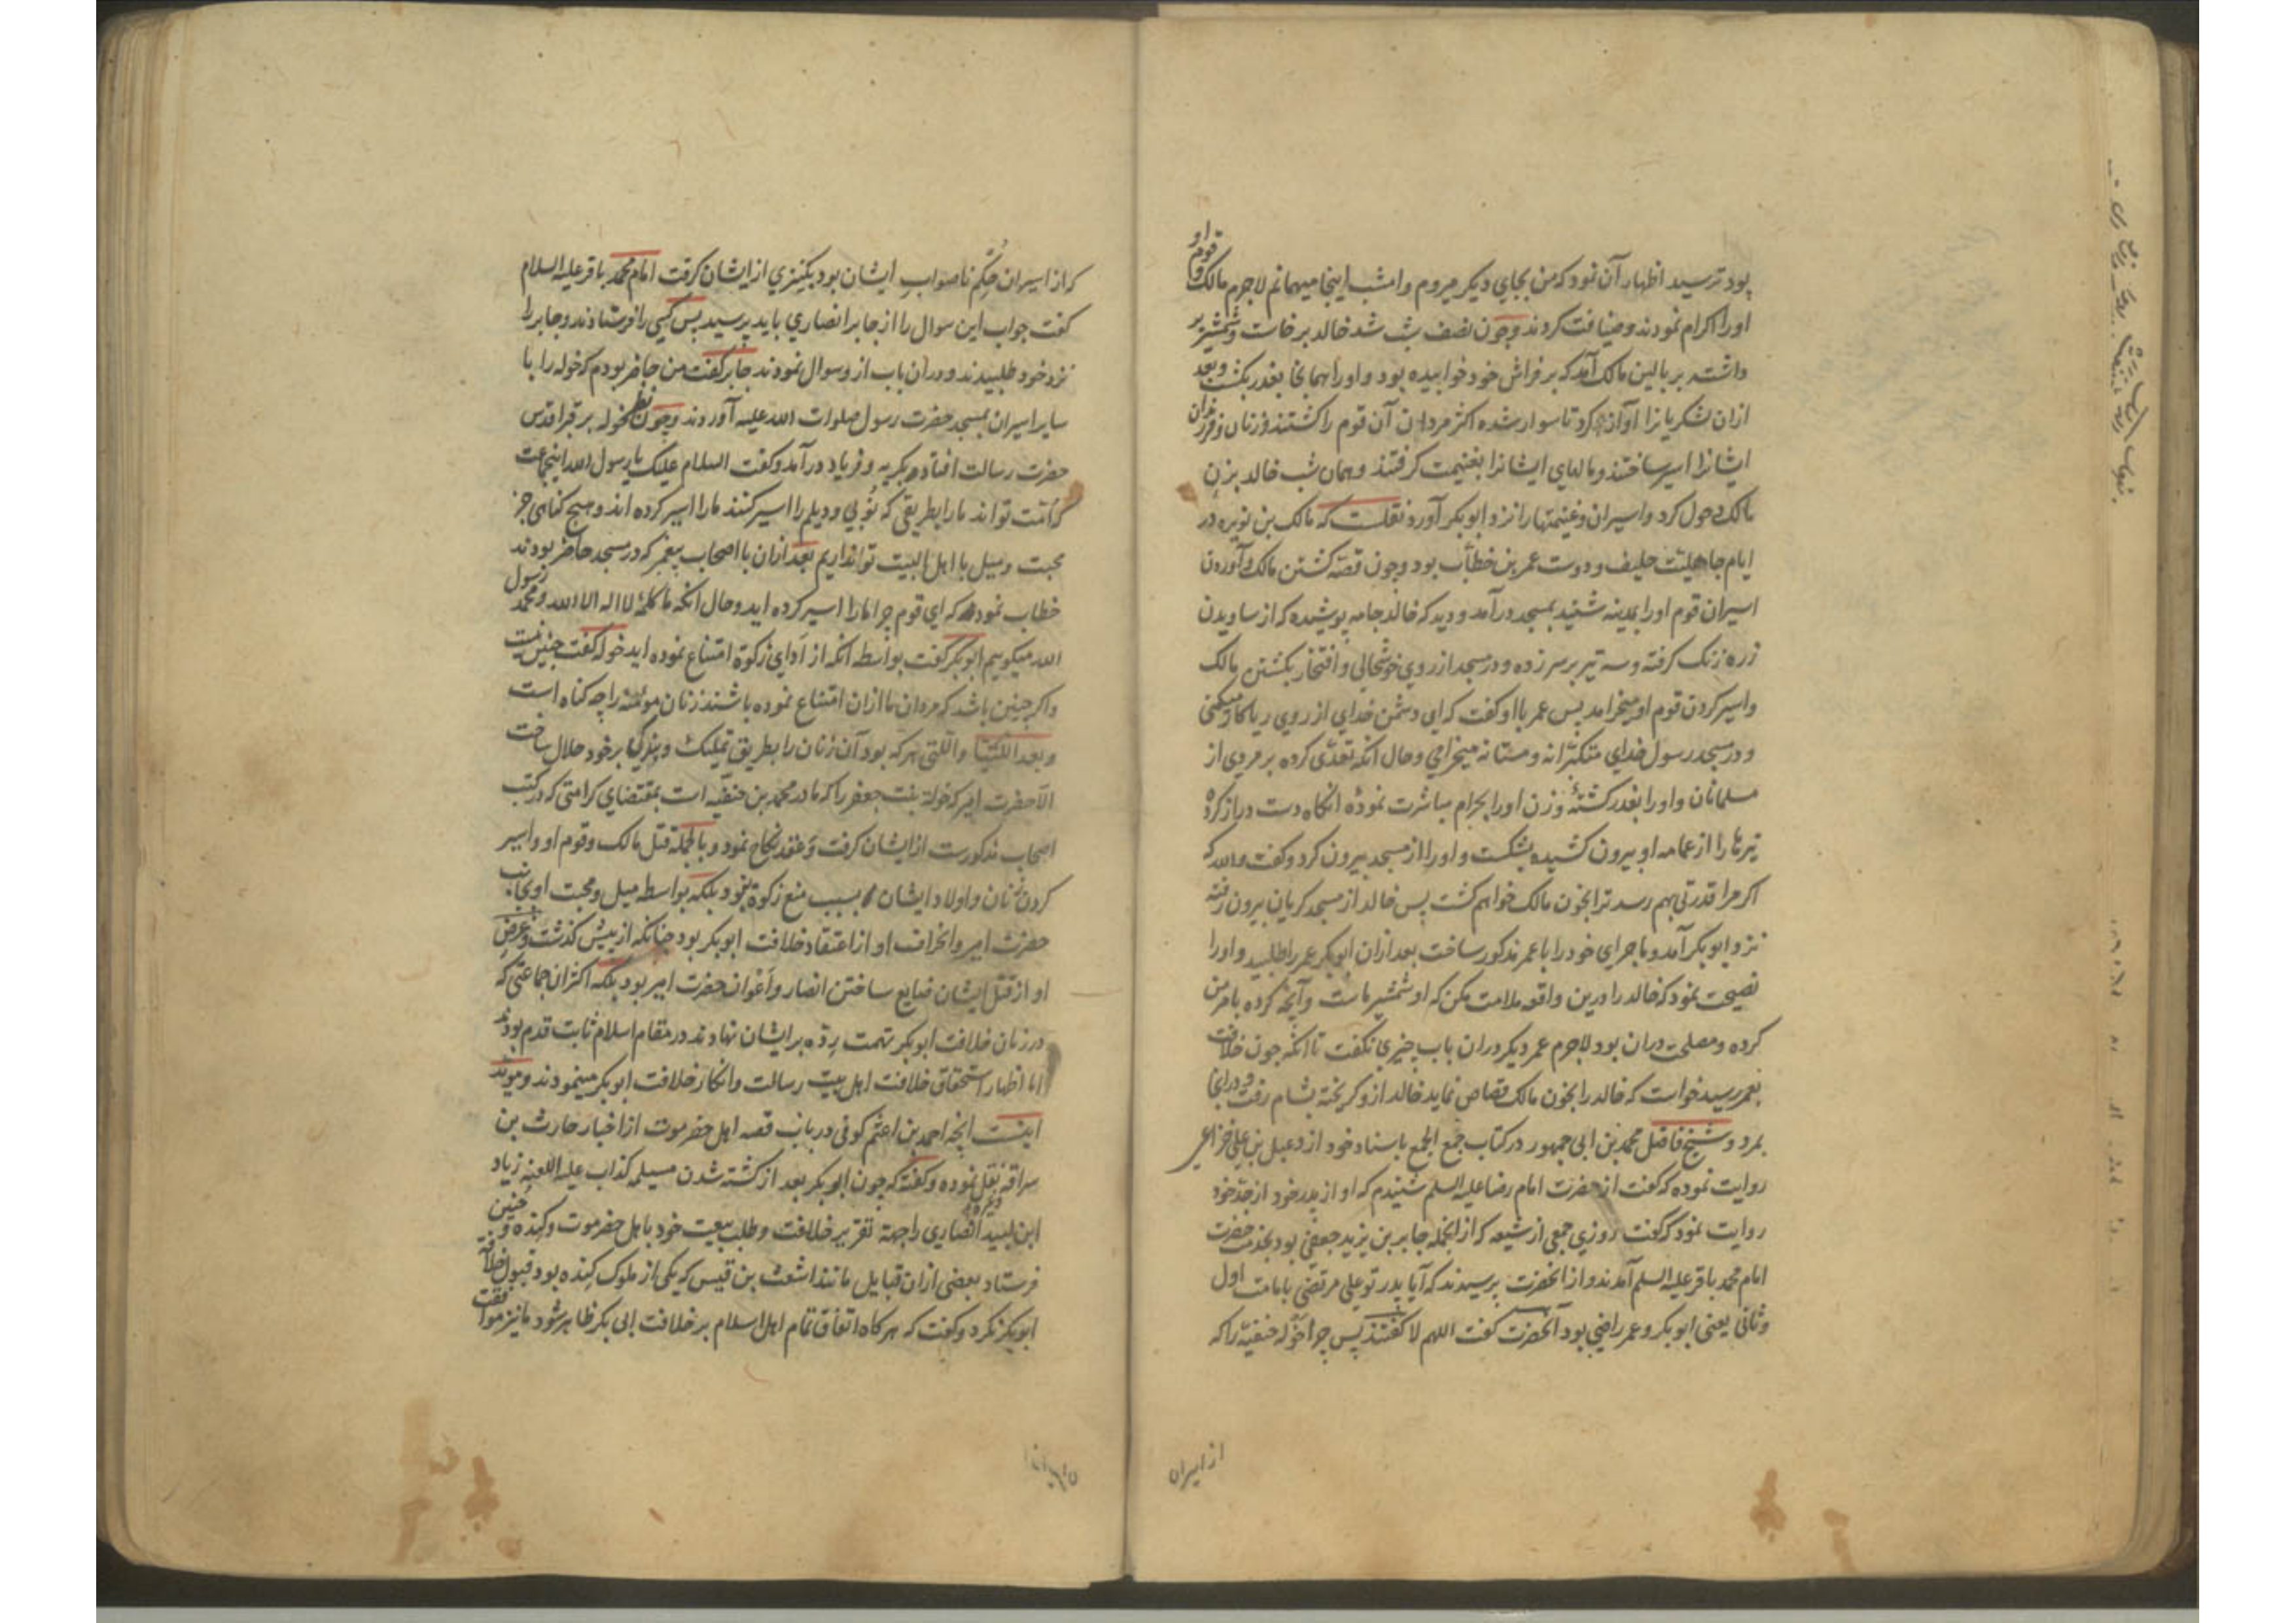 بود ترسید اظهار آن نمود که من بجای دیکر میروم و امشب اینجا میهمانم لاجرم مالک و قوم او
اورا اکرام نمودند و ضیافت کردند و چون نصف شب شد خالد برخاست و شمشیر بر
داشته بر بالین مالک آمد که بر فراش خود خوابیده بود و اورا همانجا بغدر بکشت و بعد
ازان لشکریانرا آواز کرد تا سوار شده اکثر مردان آن قوم را کشتند و زنان و فرزندان
ایشانرا اسیر ساختند و مالهای ایشانرا بغنیمت کرفتند و همان شب خالد بزن
مالک دخول کرد و اسیران و غنیمتها را نزد ابوبکر آورد نقلست که مالک بن نویره در
ایام جاهلیت حلیف و دوست عمر بن خطاب بود و چون قصه کشتن مالک و آوردن
اسیران قوم اورا بمدینه شنید بمسجد درآمد و دید که خالد جامه پوشیده که از ساویدن
زره زنک کرفته و سه تیر بر سر زده و در مسجد از روی خوشحالی و افتخار بکشتن مالک
و اسیر کردن قوم او میخرامد پس عمر با او کفت که ای دشمن خدای از روی ریا کار میکنی
و در مسجد رسول خدای متکبرانه و مستانه میخرامی و حال آنکه تعدی کرده بر مردی از
مسلمانان و اورا بغدر کشتهٔ و زن اورا بحرام مباشرت نموده آنکاه دست دراز کرده
تیرها را از عمامه او بیرون کشیده بشکست و اورا از مسجد بیرون کرد و کفت والله که
اکر مرا قدرتی بهم رسد ترا بخون مالک خواهم کشت پس خالد از مسجد کریان بیرون رفته
نزد ابوبکر آمد و ماجرای خود را با عمر مذکور ساخت بعد ازان ابوبکر عمر را طلبید و اورا
نصیحت نمود که خالد را درین واقعه ملامت مکن که او شمشیر ماست و آنچه کرده بامر من
کرده و مصلحت دران بود لاجرم عمر دیکر دران باب چیزی نکفت تا آنکه چون خلافت
بعمر رسید خواست که خالد را بخون مالک قصاص نماید خالد ازو کریخته بشام رفت و در آنجا
بمرد و شیخ فاضل محمد بن ابی جمهور در کتاب جمع الجمع باسناد خود از دعبل بن علی خزاعی
روایت نموده که کفت از حضرت امام رضا علیه السلم شنیدم که او از پدر خود از جد خود
روایت نمود که کفت روزی جمعی از شیعه که از انجمله جابر بن یزید جعفی بود بخدمت حضرت
امام محمد باقر علیه السلم آمدند و از آنحضرت پرسیدند که آیا پدر تو علی مرتضی بامامت اول
و ثانی یعنی ابوبکر و عمر راضی بود آنحضرت کفت اللهم لا کفتند پس چرا خوله حنفیه را که
از اسیران
که از اسیران حکم ناصواب ایشان بود بکنیزی از ایشان کرفت امام محمد باقر علیه السلام
کفت جواب این سوال را از جابر انصاری باید پرسید پس کسی را فرستادند و جابر را
نزد خود طلبیدند و دران باب ازو سوال نمودند جابر کفت من حاضر بودم که خوله را با
سایر اسیران بمسجد حضرت رسول صلوات الله علیه آوردند و چون نظر خوله بر قبر اقدس
حضرت رسالت افتاد بکریه و فریاد درآمد و کفت السلام علیک یا رسول الله اینجماعت
که امت تواند مارا بطریقی که نوبی و دیلم را اسیر کنند مارا اسیر کرده اند و هیچ کناهی جز
محبت و میل با اهل البیت تو نداریم بعد ازان با اصحاب پیغمبر که در مسجد حاضر بودند
خطاب نمود که ای قوم چرا مارا اسیر کرده اید و حال آنکه ما کلمهٔ لا اله الا الله و محمد رسول
الله میکوییم ابوبکر کفت بواسطه آنکه از ادای زکوة امتناع نموده اید خوله کفت چنین نیست
و اکر چنین باشد که مردان ما ازان امتناع نموده باشند زنان مومنه را چه کناه است
و بعد اللتیا و اللتی هر که بود آن زنان را بطریق تملیک و بندکی بر خود حلال ساخت
الا حضرت امیر که خولة بنت جعفر را که مادر محمد بن حنفیه است بمقتضای کرامتی که در کتب
اصحاب مذکورست از ایشان کرفت و عقد نکاح نمود و بالجمله قتل مالک و قوم او و اسیر
کردن زنان و اولاد ایشان بسبب منع زکوة نبود بلکه بواسطه میل و محبت او بجانب
حضرت امیر و انحراف او از اعتقاد خلافت ابوبکر بود چنانکه از پیش کذشت و غرض
او از قتل ایشان ضایع ساختن انصار و اعوان حضرت امیر بود بلکه اکثر ان جماعتی که
در زمان خلافت ابوبکر تهمت رده بر ایشان نهادند در مقام اسلام ثابت قدم بودند
اما اظهار استحقاق خلافت اهل بیت رسالت و انکار خلافت ابوبکر مینمودند و موید
اینست آنچه احمد بن اعثم کوفی در باب قصه اهل حضرموت از اخبار حارث بن
سراقه نقل نموده و کفته که چون ابوبکر بعد از کشته شدن مسیلمه کذاب علیه اللعنه زیاد
ابن لبید انصاری را جهة تقریر خلافت و طلب بیعت خود باهل حضرموت و کنده و
فرستاد بعضی ازان قبایل مانند اشعث بن قیس که یکی از ملوک کنده بود قبول خلافت
ابوبکر نکرد و کفت که هر کاه اتفاق تمام اهل اسلام بر خلافت ابی بکر ظاهر شود ما نیز موافقت